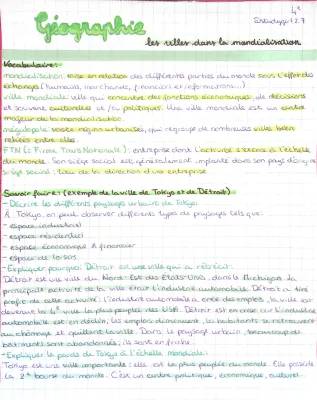 4e
Géographie
les villes dans la mondialisation
Vocabulaire:
mondialisation: mise en relation des différentes parties du monde sous l'effet des
échanges (humains, marchands, financiers et informations...)
ville mondiale: ville qui concentre des fonctions économiques, de décisions
et souvent culturelles et/ou politiques. Une ville mondiale est un centre
majeur de la mondialisation.
mégalopole: vaste région urbanisée, qui regroupe de nombreuses villes bien
reliées entre elles.
FTN (= Firmes Trans Nationale): entreprise dont l'activité s'étend à l'échelle
du monde. Son siège social est généralement implanté dans son pays d'origine
siège social: lieu de la direction d'une entreprise
Savoir faire: (exemple de la ville de Tokyo et de Détroit)
- Décrire les différents paysages urbains de Tokyo:
À Tokyo, on peut observer différents types de paysages tels que:
- espace industriel
- espace résidentiel
- espace économique & financier
- espace de loisirs
- Expliquer pourquoi Détroit est une ville qui a rétréci:
Détroit est une ville du Nord-Est des États-Unis, dans le Michigan. La
principale activité de la ville était l'industrie automobile. Détroit a tiré
profit de cette activité: l'industrie automobile a créé des emplois, la ville est
devenue la 4e ville la plus peuplée des USA. Détroit est en crise car l'industrie
automobile est en déclin, les emplois diminuent, les habitants se retrouvent
au chômage et quittent la ville. Dans le paysage urbain, beaucoup de
bâtiments sont abandonnés, ils sont en friche.
- Expliquer le poids de Tokyo à l'échelle mondiale:
Tokyo est une ville importante: elle est la plus peuplée du monde. Elle possède
la 2e bourse du monde. C'est un centre politique, économique, culturel.